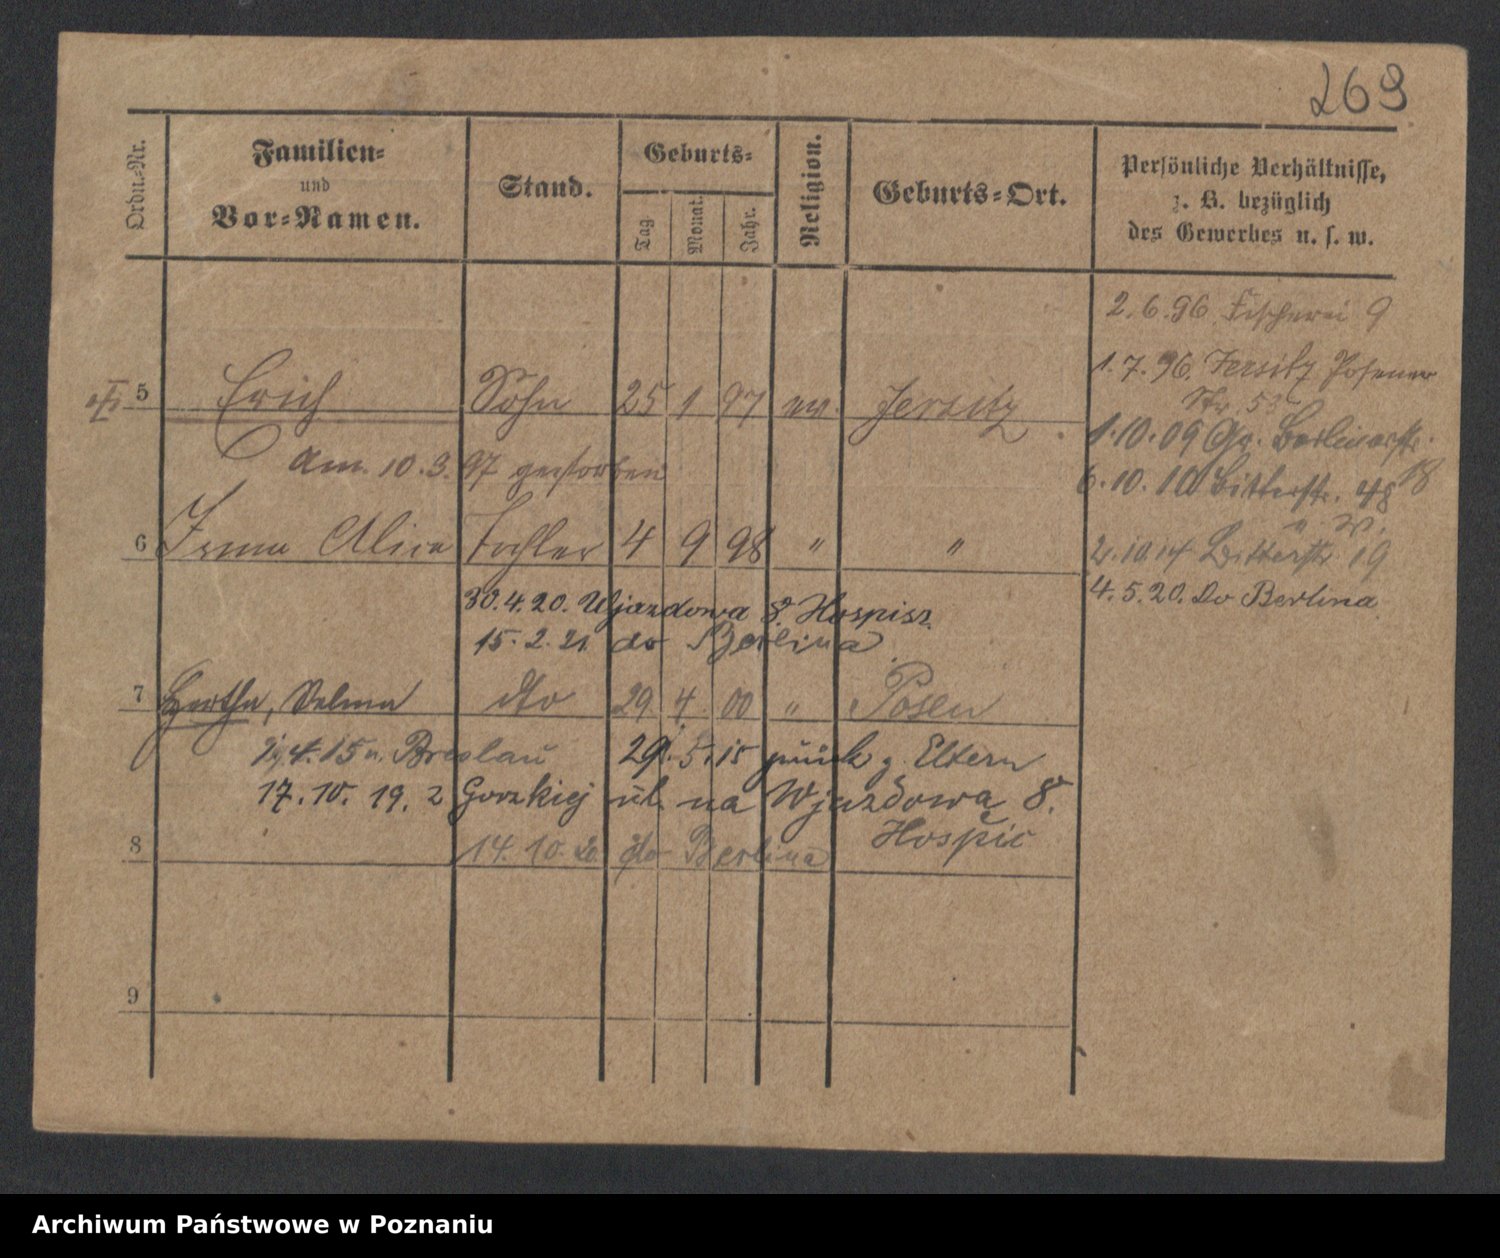 269
Ordn.-Nr.
Familien-
und
Vor-Namen.
Stand.
Geburts-
Tag
Monat.
Jahr.
Religion.
Geburts-Ort.
Persönliche Verhältnisse,
z. B. bezüglich
des Gewerbes u. s. w.
2.6.96 Fischerei 9
1.7.96. Jersitz Posener
Str. 53
5 Erich Sohn 25 1 97 ev. Jersitz
1.10.09 Gr. Berlinerstr.
18
am 10.3.97 gestorben
6.10.10 Bitterstr. 48
6 Irma Alice Tochter 4 9 98 " "
2.10.14 Bitterstr. 19
30.4.20. Wjazdowa 8 Hospisz
4.5.20. do Berlina
15.2.21 do Berlina
7 Hertha, Selma dto 29 4 00 " Posen
4.15 n. Breslau 29.5.15 zurück z. Eltern
17.10.19. z Gorzkiej ul. na Wjazdowa 8.
Hospic
8 14.10.20 do Berlina
9
Archiwum Państwowe w Poznaniu